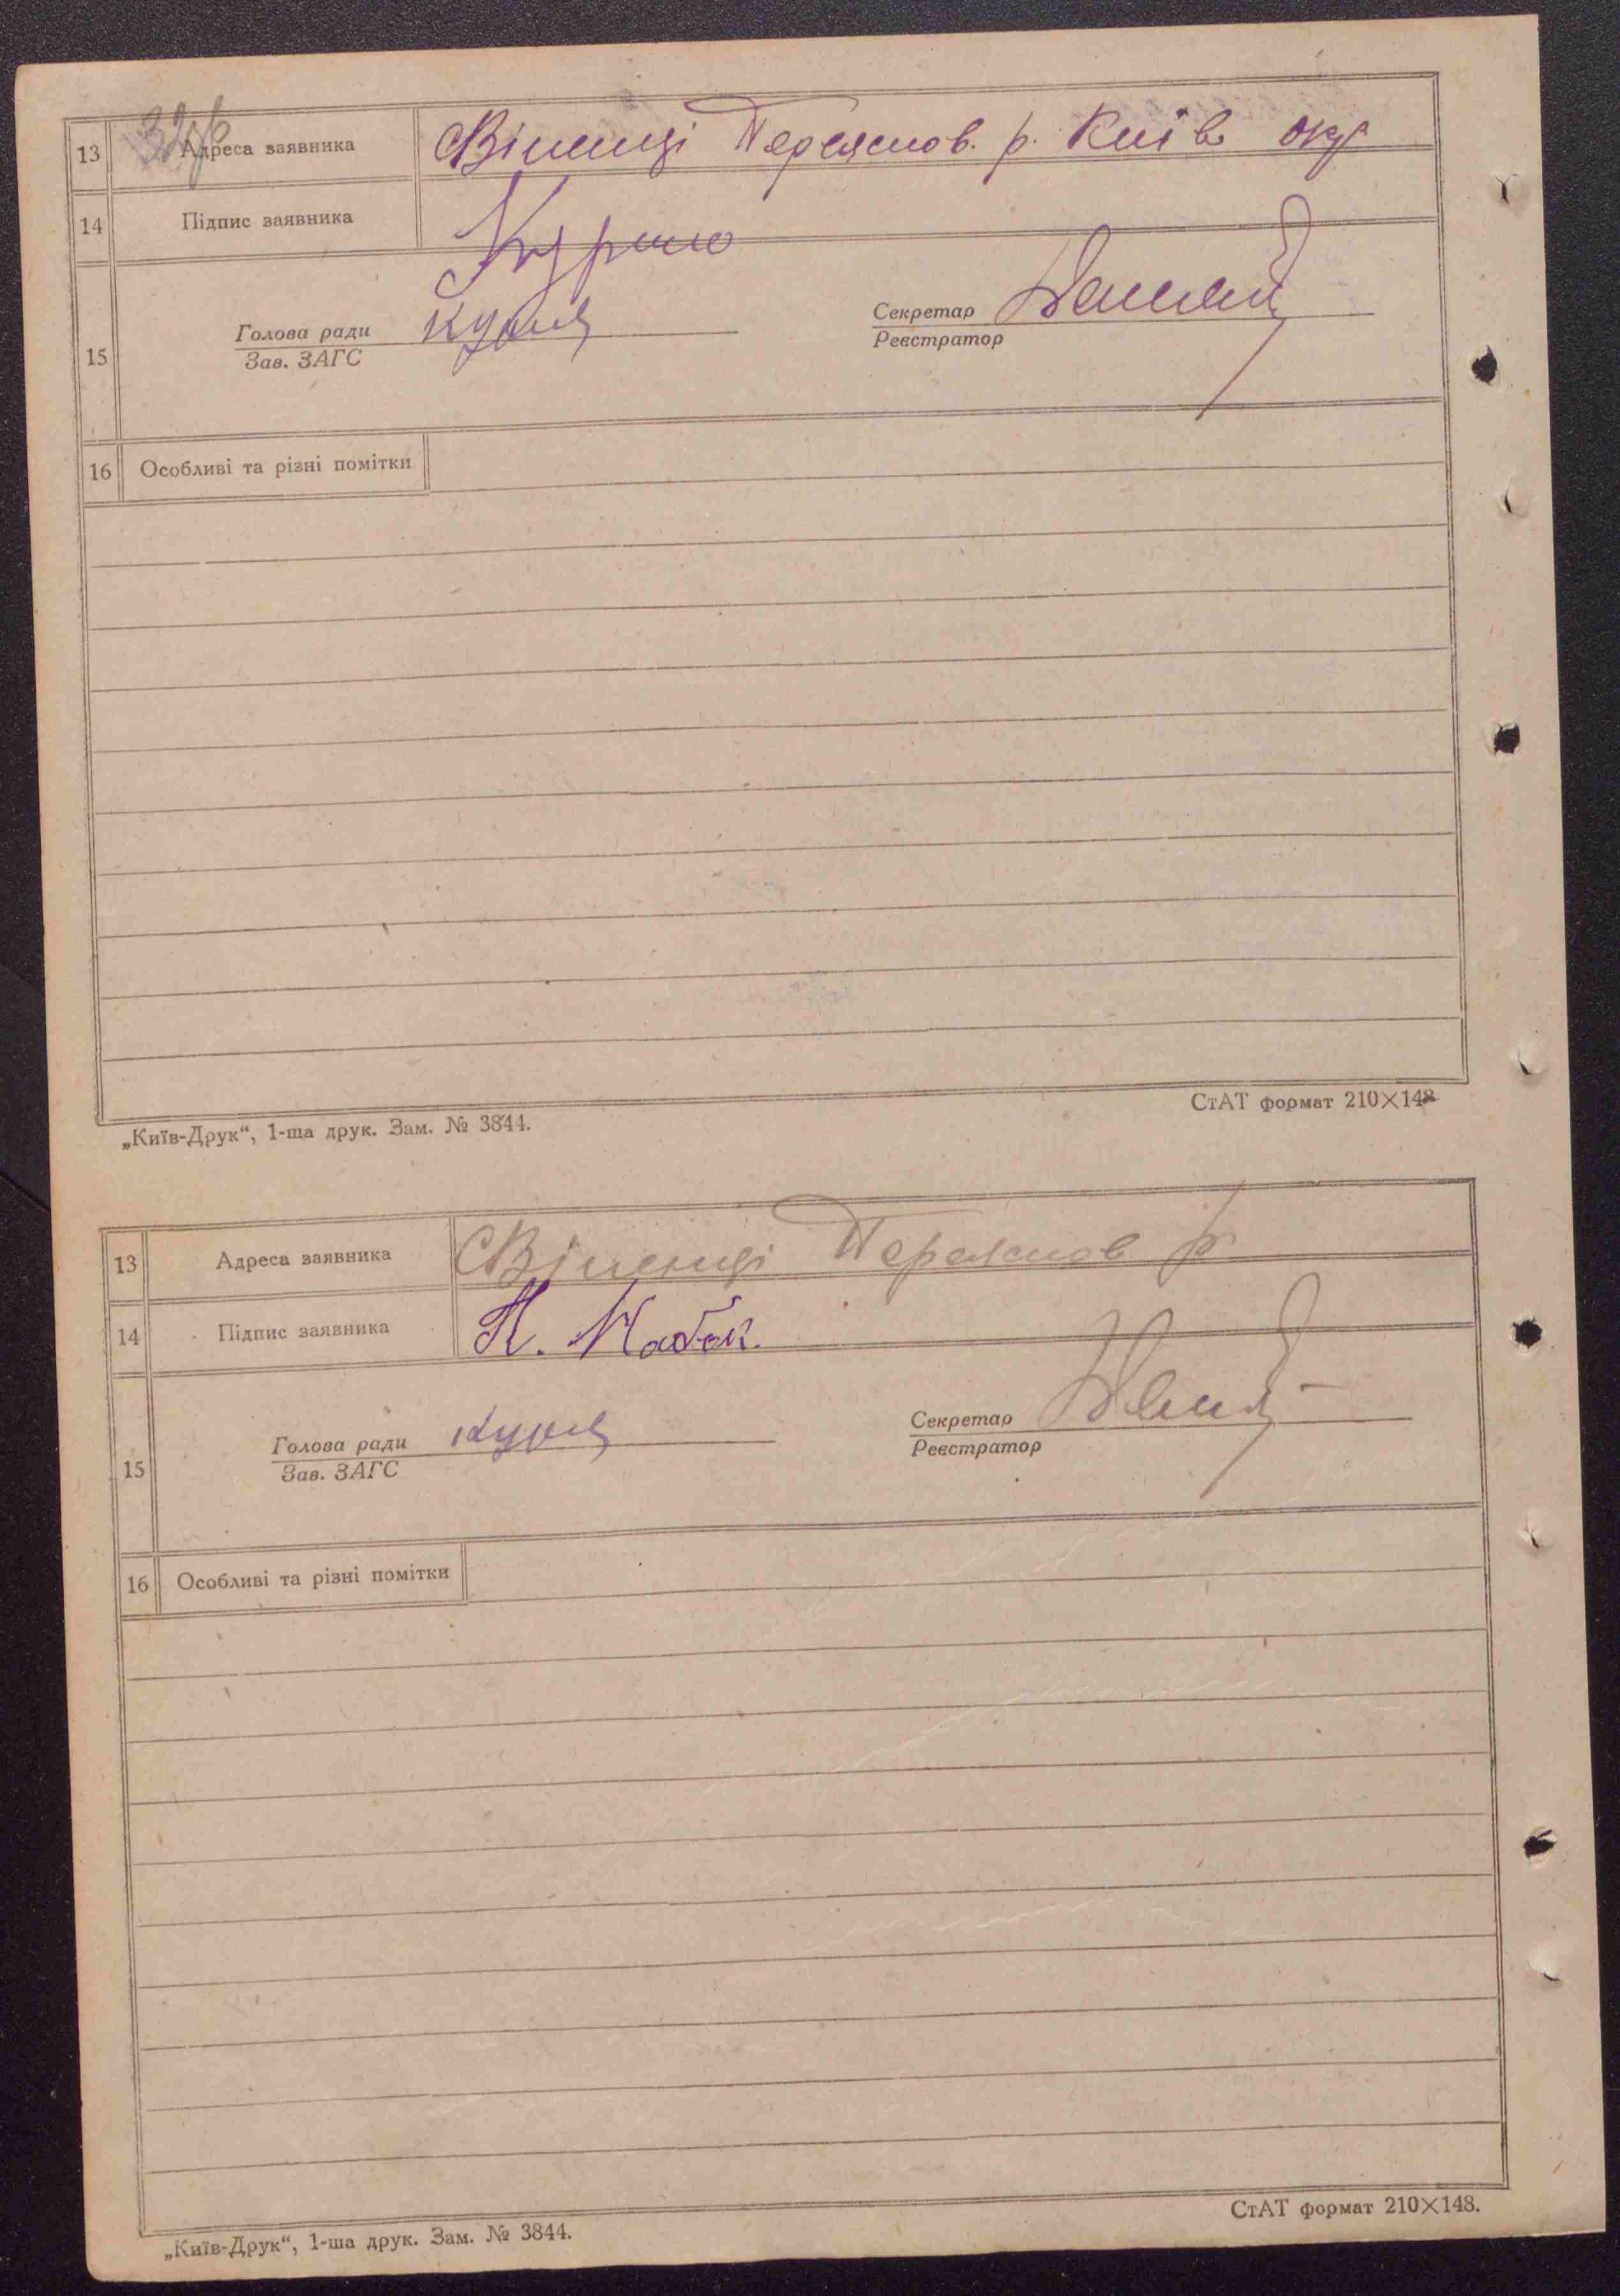 32 зв
13 Адреса заявника Віненці Переяслов. р. Київ окр
14 Підпис заявника Курило
15 Голова ради Секретар
Зав. ЗАГС Реєстратор
16 Особливі та різні помітки
„Київ-Друк“, 1-ша друк. Зам. № 3844. СтАТ формат 210×148
13 Адреса заявника Віненці Переяслов р
14 Підпис заявника П. Набок.
15 Голова ради Секретар
Зав. ЗАГС Реєстратор
16 Особливі та різні помітки
„Київ-Друк“, 1-ша друк. Зам. № 3844. СтАТ формат 210×148.